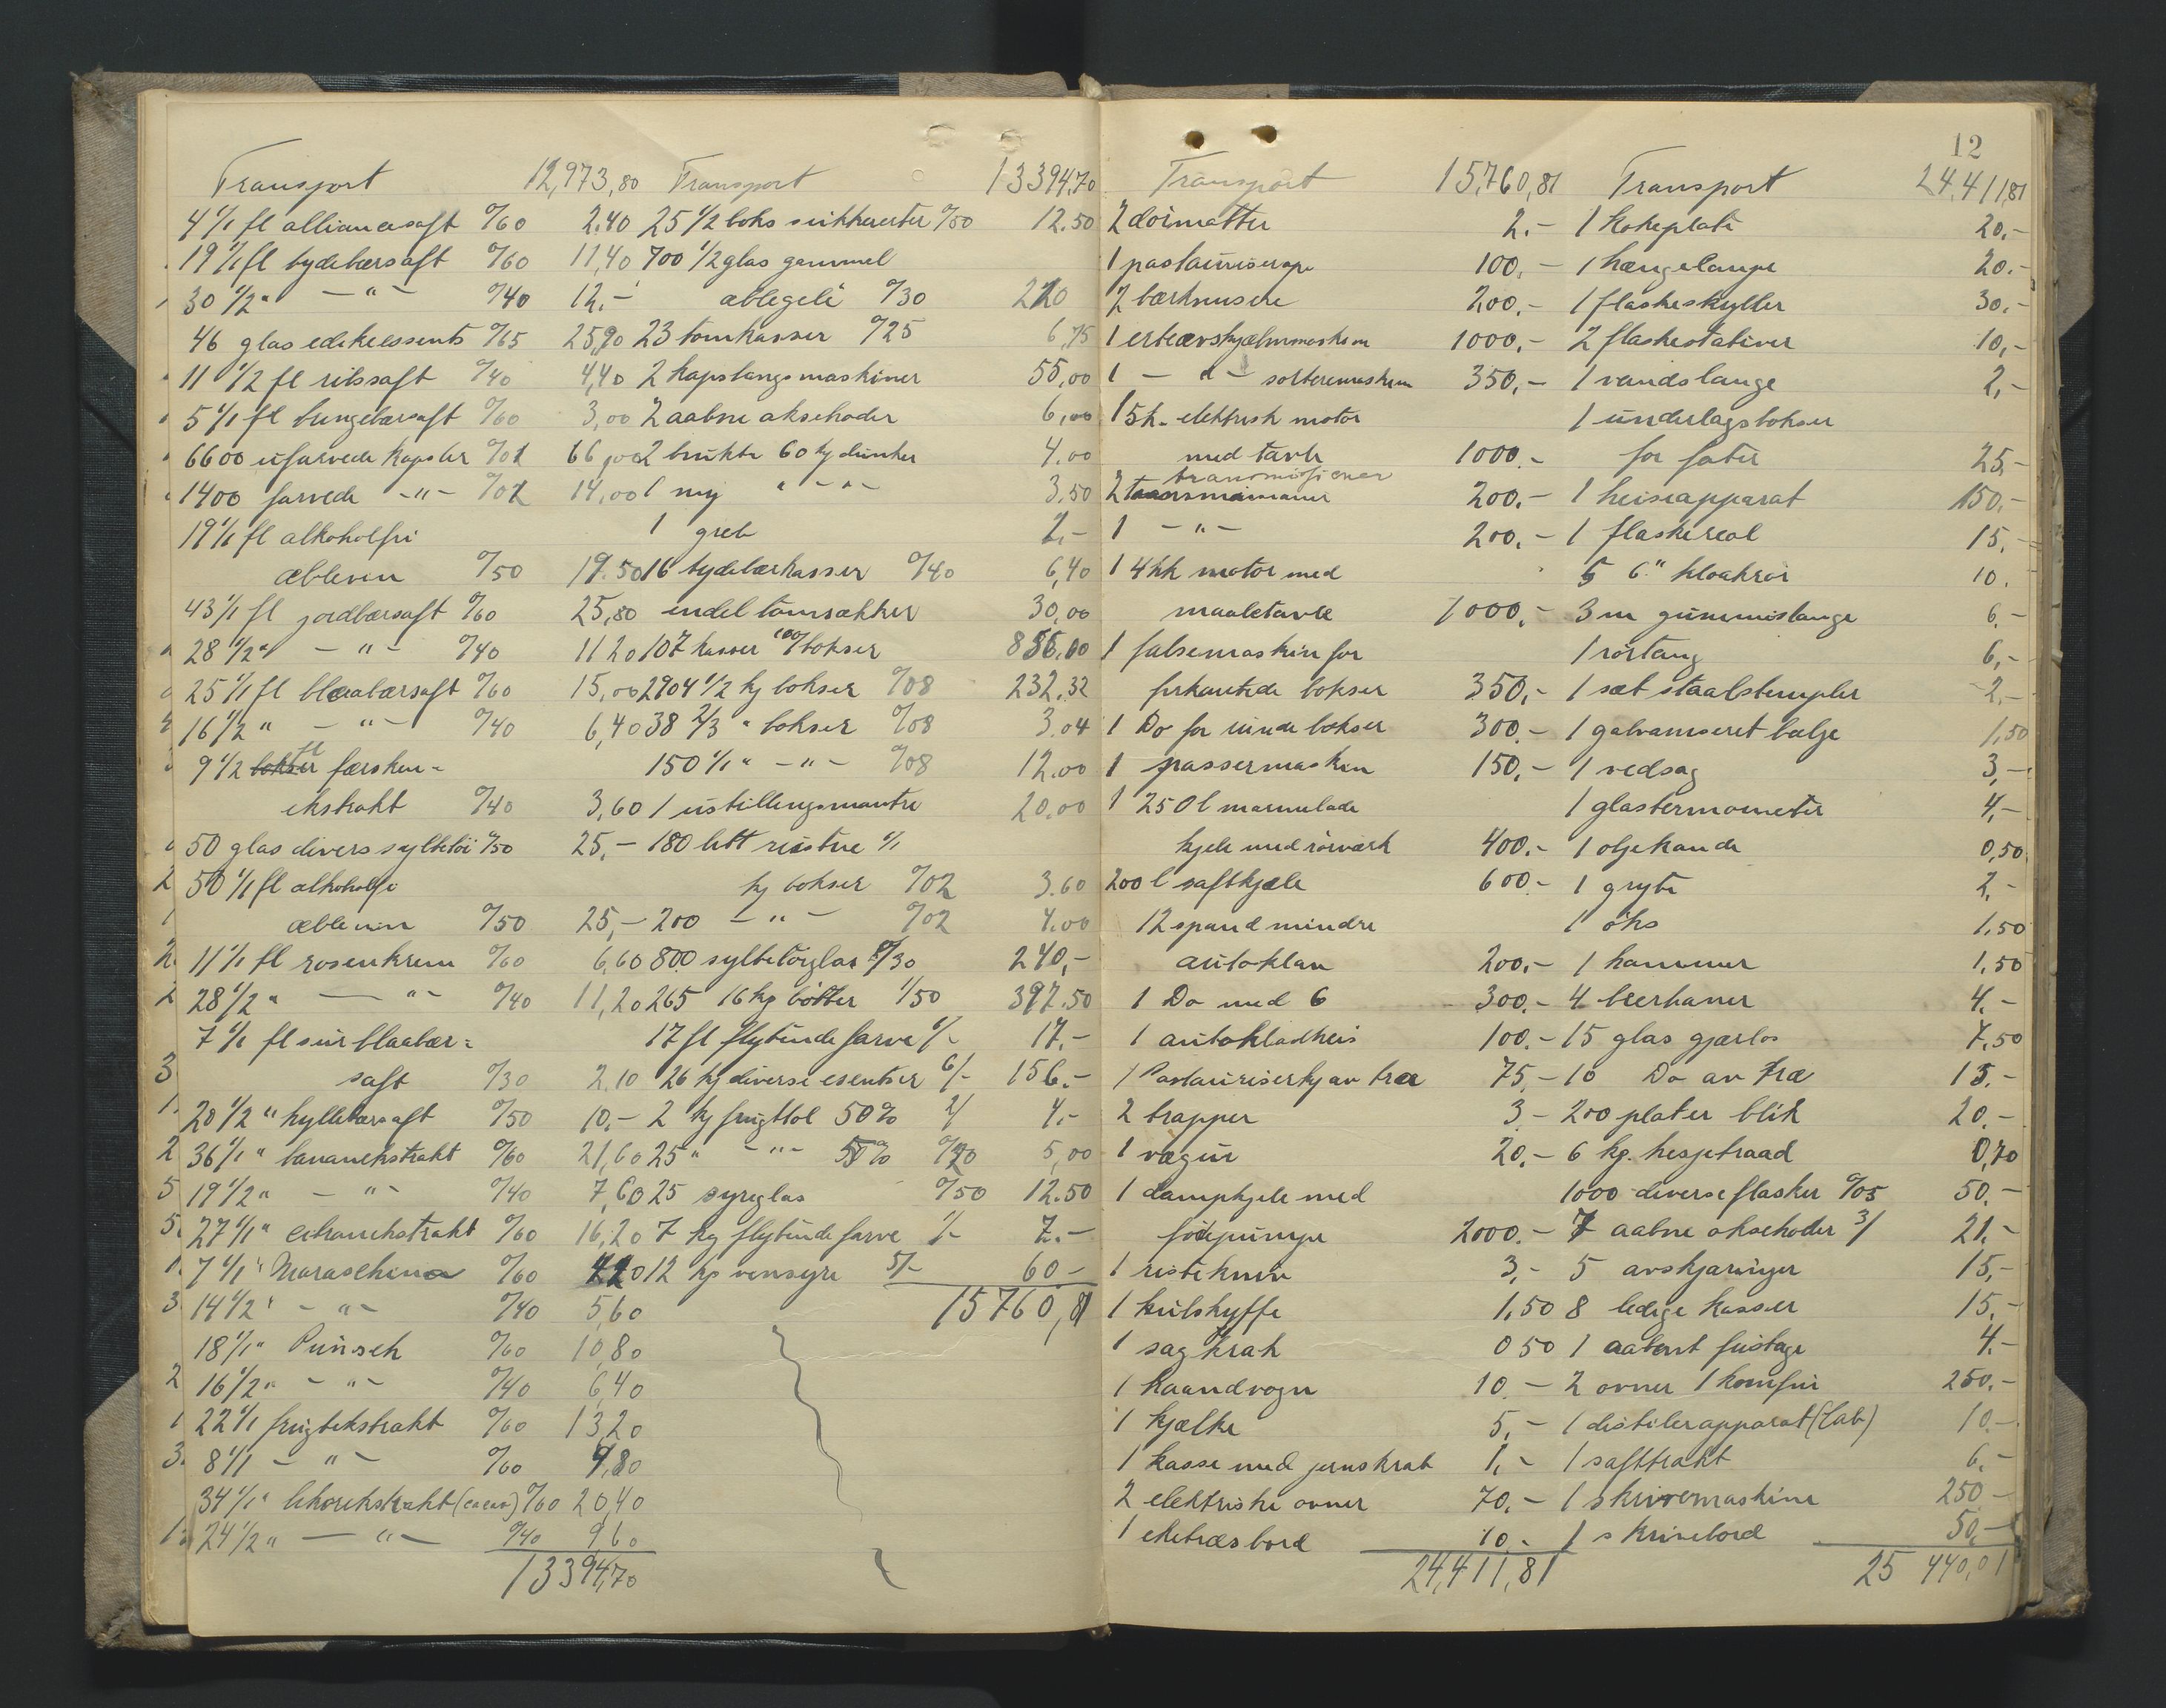 Transport 12,973,80
4 1/1 fl alliancesaft 0/60 2.40
19 1/1 fl tydebærsaft 0/60 11,40
30 1/2 " - " - 0/40 12.-
46 glas edikessents 0/65 25,90
11 1/2 fl ribssaft 0/40 4,40
5 1/1 fl bringebærsaft 0/60 3,00
6600 ufarvede kapsler 0/01 66,00
1400 farvede - " - 0/01 14,00
19 1/1 fl alkoholfri
æblevin 0/50 19.50
43 1/1 fl jordbærsaft 0/60 25,80
28 1/2 " - " - 0/40 11 20
25 1/1 fl blaabærsaft 0/60 15,00
16 1/2 " - " - 0/40 6,40
9 1/2 fl færsken-
ekstrakt 0/40 3,60
50 glas divers syltetöi 0/50 25,-
50 1/1 fl alkoholfri
æblevin 0/50 25,-
11 1/1 fl rosenkrem 0/60 6,60
28 1/2 " - " - 0/40 11,20
7 1/1 fl sur blaabær=
saft 0/30 2.10
20 1/2 " hyllebærsaft 0/50 10,-
36 1/1 " bananekstrakt 0/60 21,60
19 1/2 " - " - 0/40 7,60
27 1/1 " citronekstrakt 0/60 16,20
7 1/1 " Maraschino 0/60 4 20
14 1/2 " - " - 0/40 5,60
18 1/1 " Punsch 0/60 10,80
16 1/2 " - " - 0/40 6,40
22 1/1 frugtekstrakt 0/60 13,20
8 1/1 - " - 0/60 4,80
34 1/1 " likörekstrakt (cacao) 0/60 20,40
24 1/2 " - " - 0/40 9,60
13394,70
Transport 13394,70
25 1/2 boks sukkererter 0/50 12.50
700 1/2 glas gammel
æblegelé 0/30 210
23 tomkasser 0/25 6,75
2 kapslangsmaskiner 55,00
2 aabne oksehoder 6,00
2 brukte 60 kg dunker 4.00
1 ny " - " - 3,50
1 greb 2,-
16 tydebærkasser 0/40 6,40
endel tomsækker 30,00
107 kasser 100/1 bokser 856,00
2904 1/2 kg bokser 0/08 232,32
38 2/3 " bokser 0/08 3.04
150 1/1 " - " - 0/08 12.00
1 ustillingsmontre 20,00
180 litt rustne 1/1
kg bokser 0/02 3.60
200 - " - 0/02 4.00
800 syltetöiglas 0/30 240,-
265 16 kg bötter 1/50 397.50
17 fl flytende farve 1/- 17.-
26 kg diverse esentser 6/- 156.-
2 kg frugttol 50% 2/ 4,-
25 " - " - 50% 0/20 5,00
25 syreglas 0/50 12.50
7 kg flytende farve 1/- 7.-
12 kg vinsyre 5/- 60 -
15760,81
Transport 15,760,81
2 dörmatter 2.-
1 pasteuriserapp 100.-
2 bærknusere 200.-
1 erteavskjælmmaskin 1000.-
1 - " - sorteremaskin 350,-
1 5 h. elektrisk motor
med tavle 1000.-
transmissioner
2 200.-
1 - " - 200.-
1 4 hk motor med
maaletavle 1000,-
1 falsemaskin for
firkantede bokser 350,-
1 Do for runde bokser 300.-
1 passermaskin 150,-
1 250 l marmelade
kjele med rörværk 400.-
200 l saftkjæle 600-
12 spand mindre
autoklav 200.-
1 Do med 6 300.-
1 autoklavheis 100.-
1 Pasteuriserkj av træ 75,-
2 trapper 3-
1 vægur 20,-
1 dampkjele med
födepumpe 2000.-
1 ristekniv 3,-
1 kulskyffe 1,50
1 sag krak 0 50
1 haandvogn 10.-
1 kjælke 5,-
1 kasse med jernskrab 1,-
2 elektriske ovner 70.-
1 eketræsbord 10.-
24,411,81
12
Transport 24,411,81
1 kokeplate 20.-
1 hængelampe 20.-
1 flaskeskyller 30,-
2 flaskestativer 10,-
1 vandslange 2,-
1 underlagsbokser
for fater 25,-
1 heiseapparat 150.-
1 flaskereol 15.-
5 6" kloakrör 10.
3 m gummislange 6,-
1 rörtang 6,-
1 sæt staalstempler 2,-
1 galvaniseret balje 1,50
1 vedsag 3,-
1 glastermometer 4,-
1 oljekande 0,50
1 gryte 2,-
1 öks 1,50
1 hammer 1,50
4 beerhaner 4.-
15 glas gjærlos 7,50
10 Do av træ 15.-
200 plater blik 20.-
6 kg. hesjetraad 0,70
1000 diverse flasker 0/05 50.-
7 aabne oksehoder 3/ 21.-
5 avskjæringer 15,-
8 ledige kasser 15,-
1 aabent fustage 4.-
2 ovner 1 komfur 250.-
1 distilerapparat (Lab) 10.-
1 safttrakt 6,-
1 skrivemaskine 250-
1 skrivebord 50,-
25 440,01